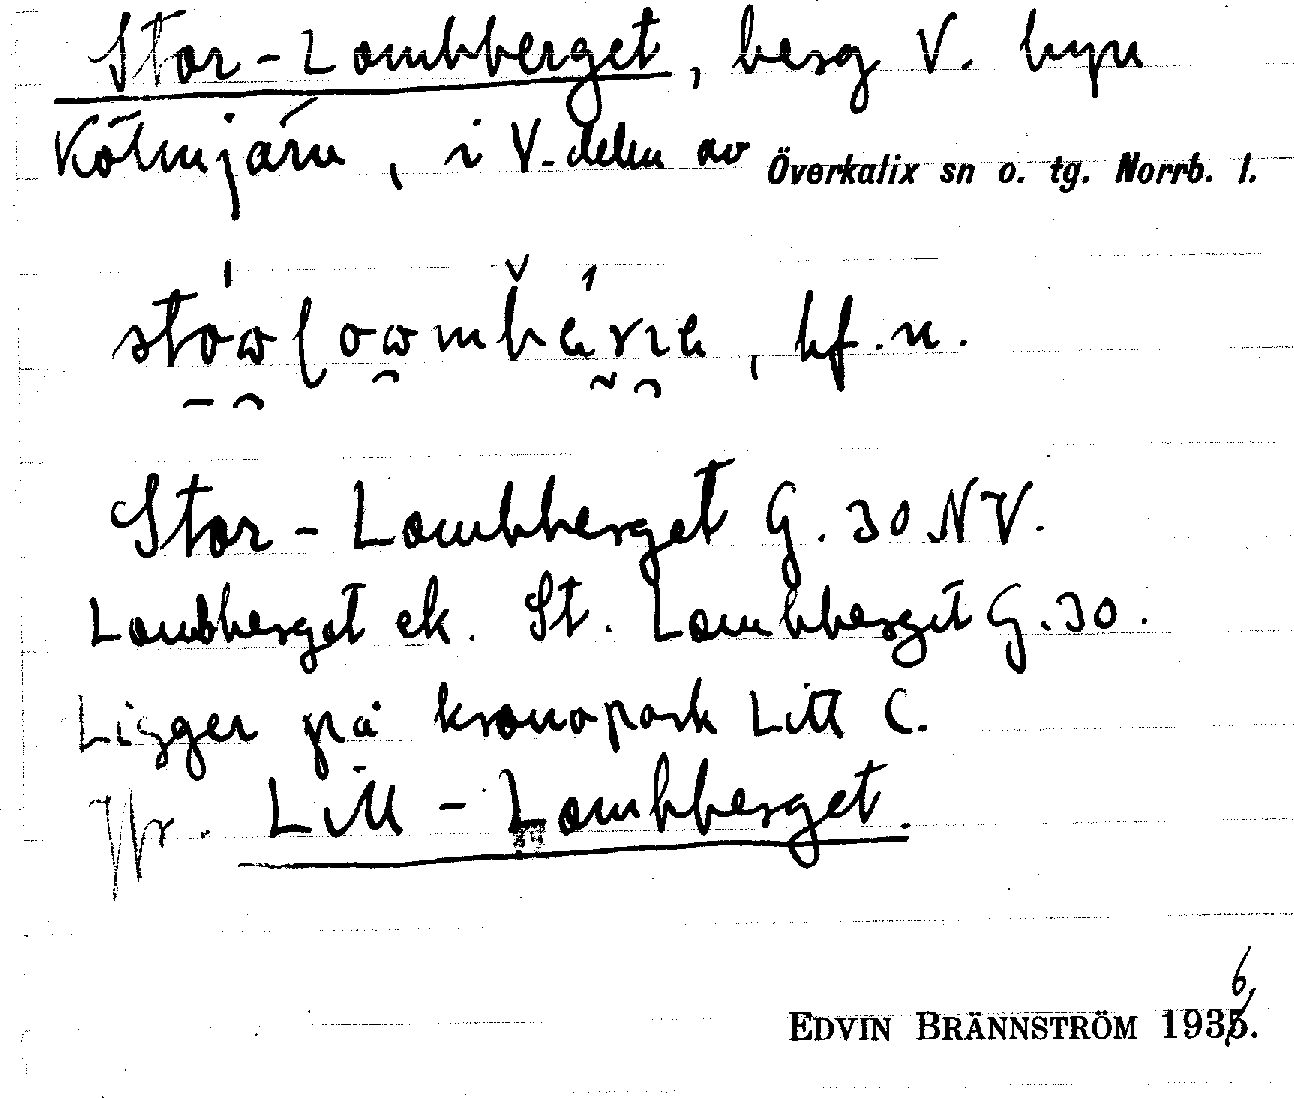 Stor-Lombberget, berg V. byn
Kölmjärv, i V-delen av Överkalix sn o. tg. Norrb. l.
bf. n.
Stor-Lombberget G. 30 NV.
Lombberget ek. St. Lombberget G. 30.
Ligger på kronopark Litt C.
Jfr. Lill-Lombberget.
6
EDVIN BRÄNNSTRÖM 1935.